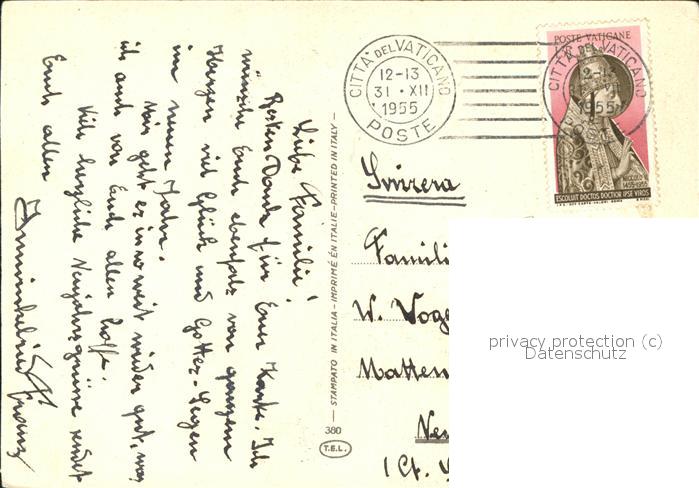 Liebe Familie!
Besten Dank für Eure Karte. Ich
wünsche Euch ebenfalls von ganzem
Herzen viel Glück und Gottes-Segen
im neuen Jahre.
Mir geht es in so weit wieder gut, was
ich auch von Euch allen hoffe.
Viele herzliche Neujahrsgrüsse sendet
Euch allen
Franz
— STAMPATO IN ITALIA – IMPRIMÉ EN ITALIE – PRINTED IN ITALY —
380
T.E.L.
CITTÀ DEL VATICANO
12-13
31 · XII
1955
POSTE
CITTÀ DEL VATICANO
12-13
1955
POSTE
POSTE VATICANE
NICCOLÒ V
1455-1955
ESCOLUIT DOCTOS DOCTIOR IPSE VIROS
Svizzera
Famili
W. Voge
Matten
Ne
(Ct.
privacy protection (c)
Datenschutz